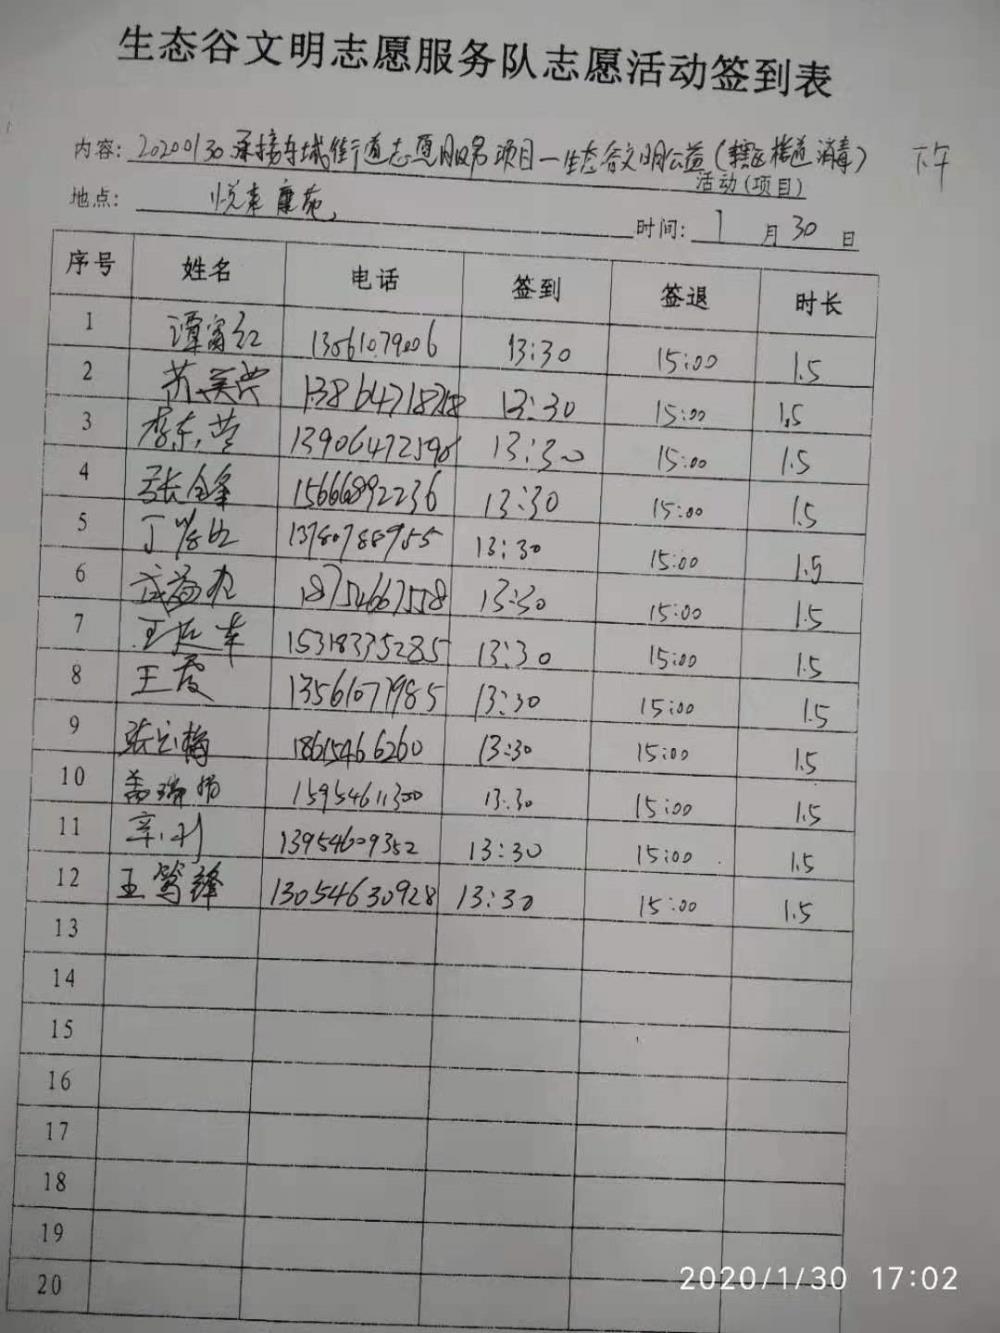 生态谷文明志愿服务队志愿活动签到表
内容: 20200130承接东城街道志愿服务项目—生态谷文明公益(辖区楼道消毒) 下午
活动(项目)
地点: 悦来康苑
时间: 1月30日
序号 姓名 电话 签到 签退 时长
1 谭富红 13561079006 13:30 15:00 1.5
2 苏美兴 13:30 15:00 1.5
3 李东芳 13906472596 13:30 15:00 1.5
4 张金锋 15666892236 13:30 15:00 1.5
5 13780788955 13:30 15:00 1.5
6 18754667558 13:30 15:00 1.5
7 王延军 15318335285 13:30 15:00 1.5
8 王霞 13561077985 13:30 15:00 1.5
9 张云梅 18615466260 13:30 15:00 1.5
10 盖瑞娟 15954611300 13:30 15:00 1.5
11 辛利 13954609352 13:30 15:00 1.5
12 王笃锋 13054630928 13:30 15:00 1.5
13
14
15
16
17
18
19
20
2020/1/30 17:02